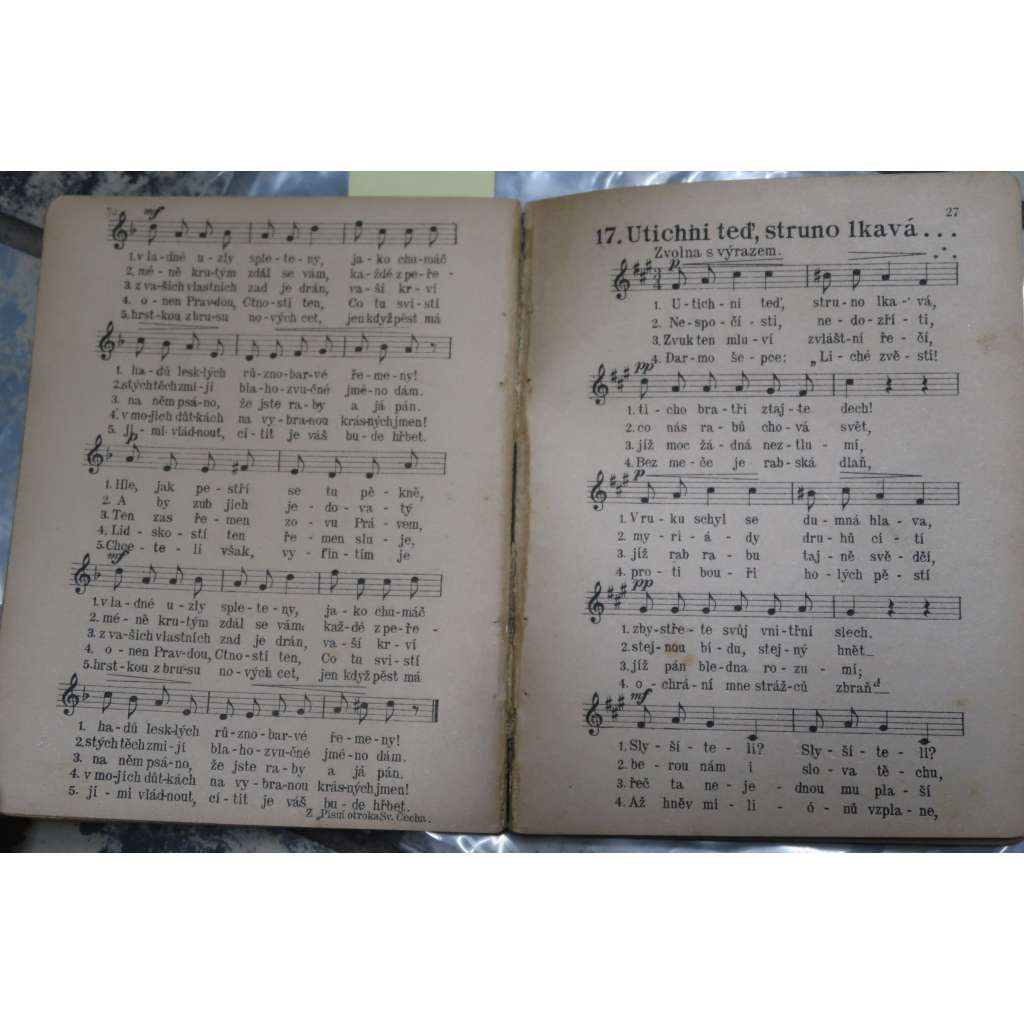 mf
1. v la-dné u-zly sple-te-ny, ja-ko chu-máč
2. mé-ně kru-tým zdál se vám, ka-ždé z pe-ře-
3. z va-šich vlastních zad je drán, va-ší kr-ví
4. o-nen Prav-dou, Ctno-stí ten, Co tu sví-stí
5. hrst-kou z bru-su no-vých cet, jen když pěst má
1. ha-dů lesk-lých rů-zno-bar-vé ře-me-ny!
2. stých těch zmi-jí bla-ho-zvu-čné jmé-no dám.
3. na něm psá-no, že jste ra-by a já pán.
4. v mo-jich důt-kách na vy-bra-nou krás-ných jmen!
5. ji-mi vlád-nout, cí-tit je váš bu-de hřbet.
p
1. Hle, jak pe-stří se tu pě-kně,
2. A by zub jich je-do-va-tý
3. Ten zas ře-men zo-vu Prá-vem,
4. Lid-sko-stí ten ře-men slu-je,
5. Chce-te-li však, vy-řin-tím je
mf
1. v la-dné u-zly sple-te-ny, ja-ko chu-máč
2. mé-ně kru-tým zdál se vám, každ-é z pe-ře-
3. z va-šich vlastních zad je drán, va-ší kr-ví
4. o-nen Prav-dou, Ctno-stí ten, Co tu sví-stí
5. hrst-kou z bru-su no-vých cet, jen když pěst má
1. ha-dů lesk-lých rů-zno-bar-vé ře-me-ny!
2. stých těch zmi-jí bla-ho-zvu-čné jmé-no dám.
3. na něm psá-no, že jste ra-by a já pán.
4. v mo-jich důt-kách na vy-bra-nou krás-ných jmen!
5. ji-mi vlád-nout, cí-tit je váš bu-de hřbet.
Z „Písní otroka Sv. Čecha.
27
17. Utichni teď, struno lkavá...
Zvolna s výrazem.
p
1. U-tich-ni teď, stru-no lka-vá,
2. Ne-spo-čí-sti, ne-do-zří-ti,
3. Zvuk ten mlu-ví zvlášt-ní ře-čí,
4. Dar-mo še-pce: „Li-ché zvě-sti!
pp
1. ti-cho bra-tři ztaj-te dech!
2. co nás ra-bů cho-vá svět,
3. jíž moc žá-dná nez-tlu-mí,
4. Bez me-če je rab-ská dlaň,
p
1. V ru-ku schyl se du-mná hla-va,
2. my-ri-á-dy dru-hů cí-tí
3. jíž rab ra-bu taj-ně svě-dčí,
4. pro-ti bou-ři ho-lých pě-stí
pp
1. zby-stře-te svůj vni-třní slech.
2. stej-nou bí-du, stej-ný hnět
3. jíž pán ble-dna ro-zu-mí;
4. o-chrá-ní mne stráž-ců zbraň“
mf
1. Sly-ší-te-li? Sly-ší-te-li?
2. be-rou nám i slo-va tě-chu,
3. řeč ta ne-je-dnou mu pla-ší
4. Až hněv mi-li-ó-nů vzpla-ne,